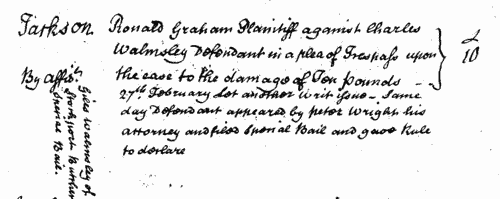 Jackson. Ronald Graham Plaintiff against Charles
Walmsley Defendant in a plea of Trespass upon
the case to the damage of Ten pounds
£
10
By affit.
27th February let another writ issue - Same
day Defendant appeared by Peter Wright his
attorney and filed Special Bail and gave Rule
to declare
Giles Walmsley of
Stockport
Special Bail.